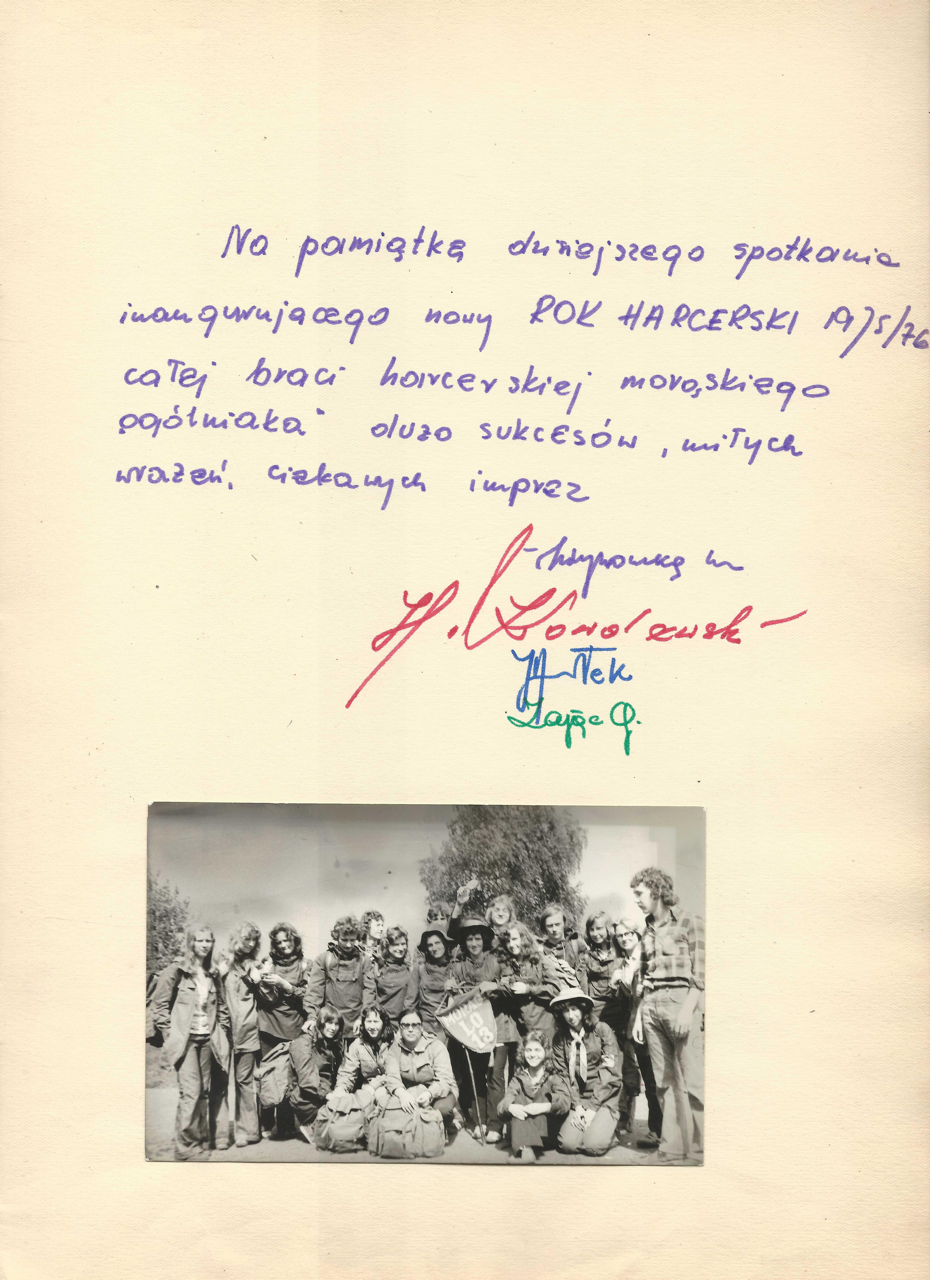 Na pamiątkę dzisiejszego spotkania
inaugurującego nowy ROK HARCERSKI 1975/76
całej braci harcerskiej morąskiego
ogólniaka" dużo sukcesów, miłych
wrażeń, ciekawych imprez
H. Kowalewsk
Zając G.